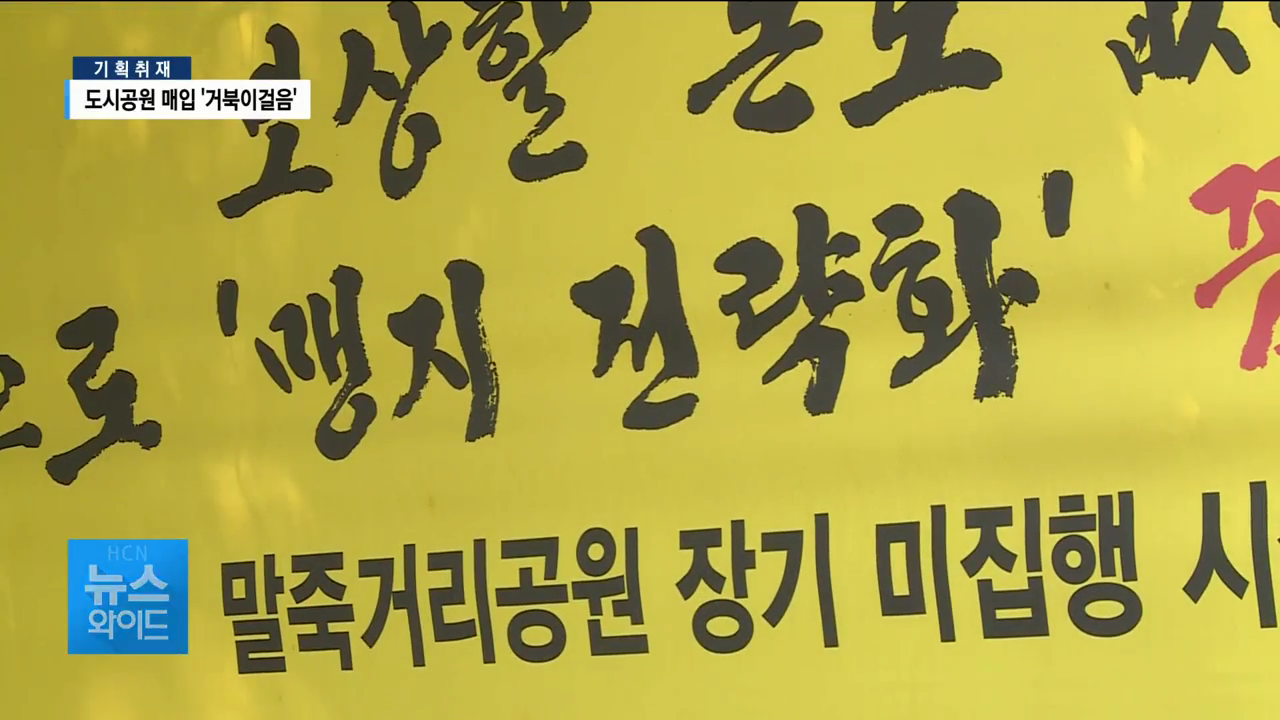 기획취재
도시공원 매입 '거북이걸음'
보상할
으로 '맹지 전략화'
말죽거리공원 장기 미집행 시
HCN
뉴스
와이드